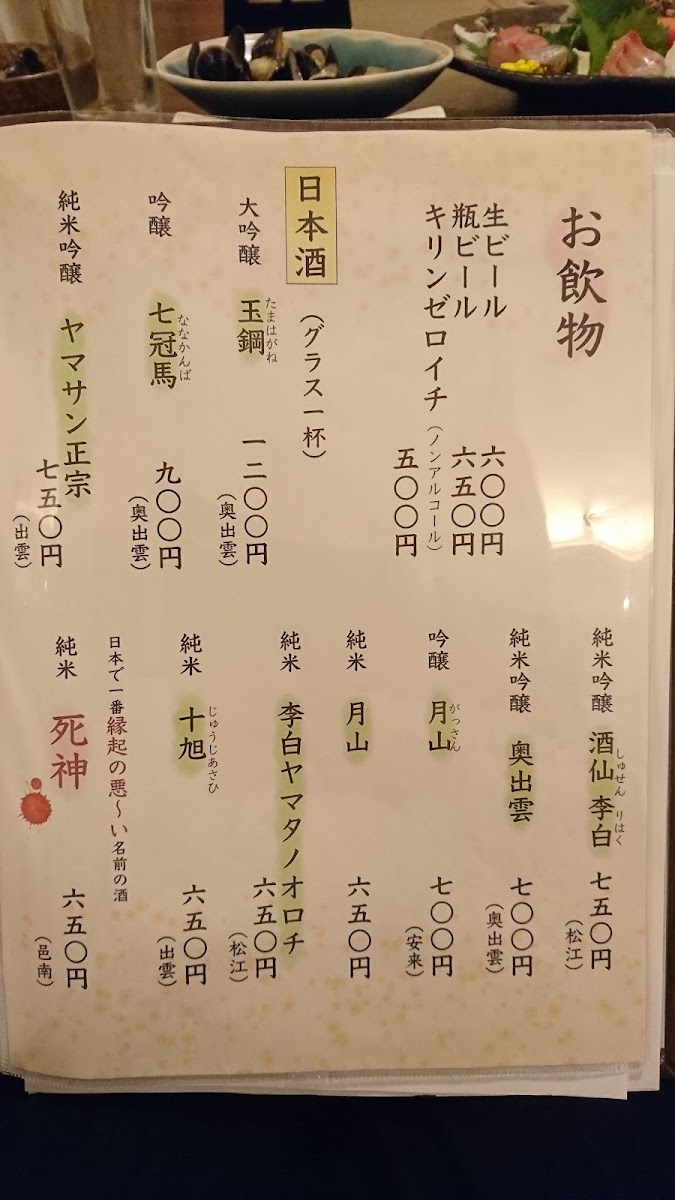 お飲物
生ビール 六〇〇円
瓶ビール 六五〇円
キリンゼロイチ（ノンアルコール） 五〇〇円
日本酒（グラス一杯）
大吟醸 玉鋼 たまはがね 一二〇〇円（奥出雲）
吟醸 七冠馬 ななかんば 九〇〇円（奥出雲）
純米吟醸 ヤマサン正宗 七五〇円（出雲）
純米吟醸 酒仙 李白 しゅせん りはく 七五〇円（松江）
純米吟醸 奥出雲 七〇〇円（奥出雲）
吟醸 月山 がっさん 七〇〇円（安来）
純米 月山 六五〇円
純米 李白ヤマタノオロチ 六五〇円（松江）
純米 十旭 じゅうじあさひ 六五〇円（出雲）
日本で一番縁起の悪〜い名前の酒
純米 死神 六五〇円（邑南）